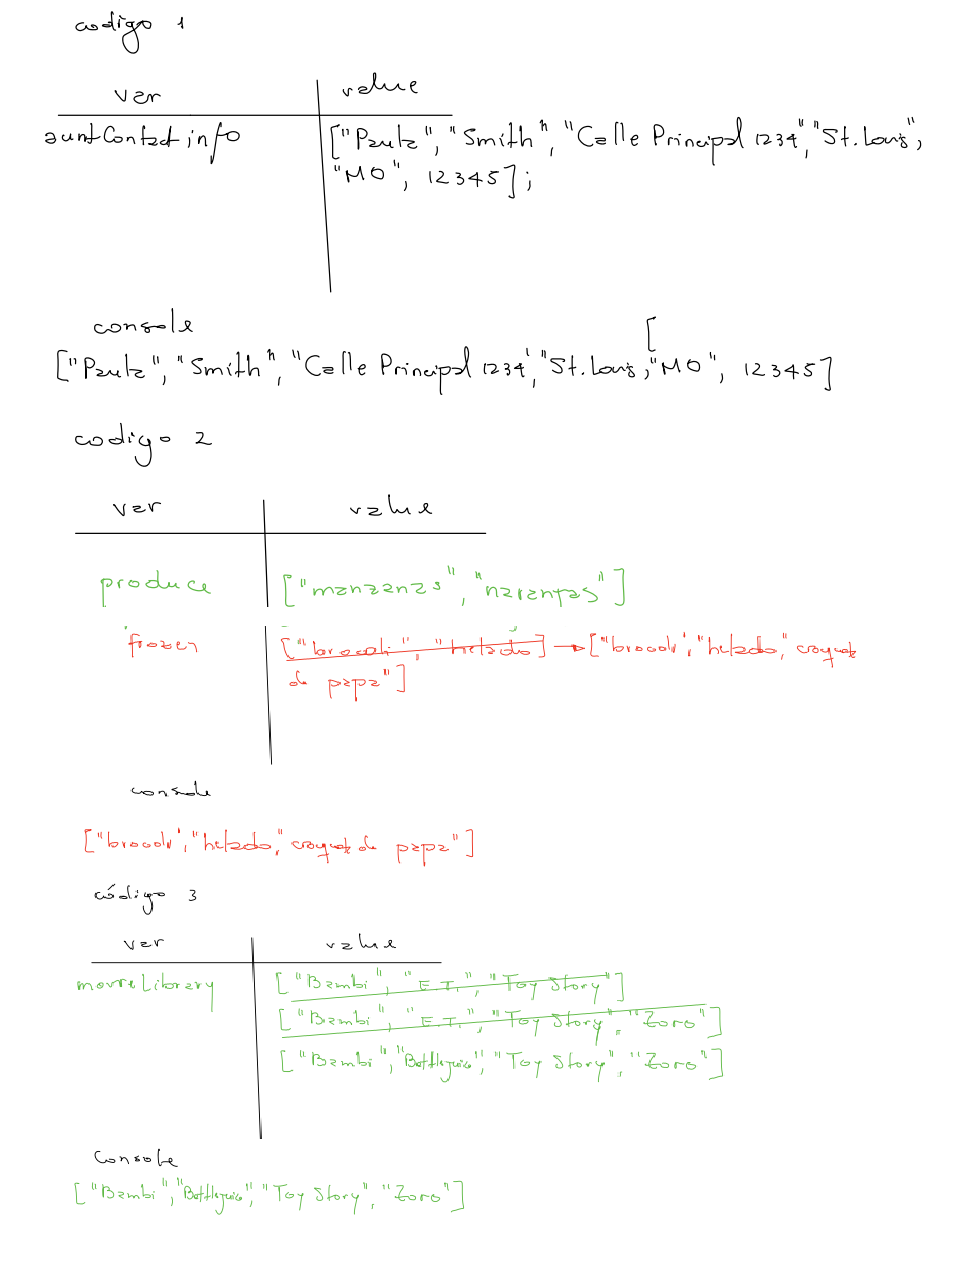 codigo 1
var value
auntContact info ["Paula", "Smith", "Calle Principal 1234", "St. Louis",
"MO", 12345];
console
[
["Paula", "Smith", "Calle Principal 1234', "St. Louis, "MO", 12345]
codigo 2
var value
produce ["manzanas", "naranjas"]
frozen ["brocoli", "helado] → ["brocoli", "helado", croquetas
de papa"]
console
["brocoli", "helado", croquetas de papa"]
código 3
var value
movieLibrary ["Bambi", "E.T.", "Toy Story"]
["Bambi", "E.T.", "Toy Story", "Zoro"]
["Bambi", "Beetlejuice", "Toy Story", "Zoro"]
Console
["Bambi", "Beetlejuice", "Toy Story", "Zoro"]